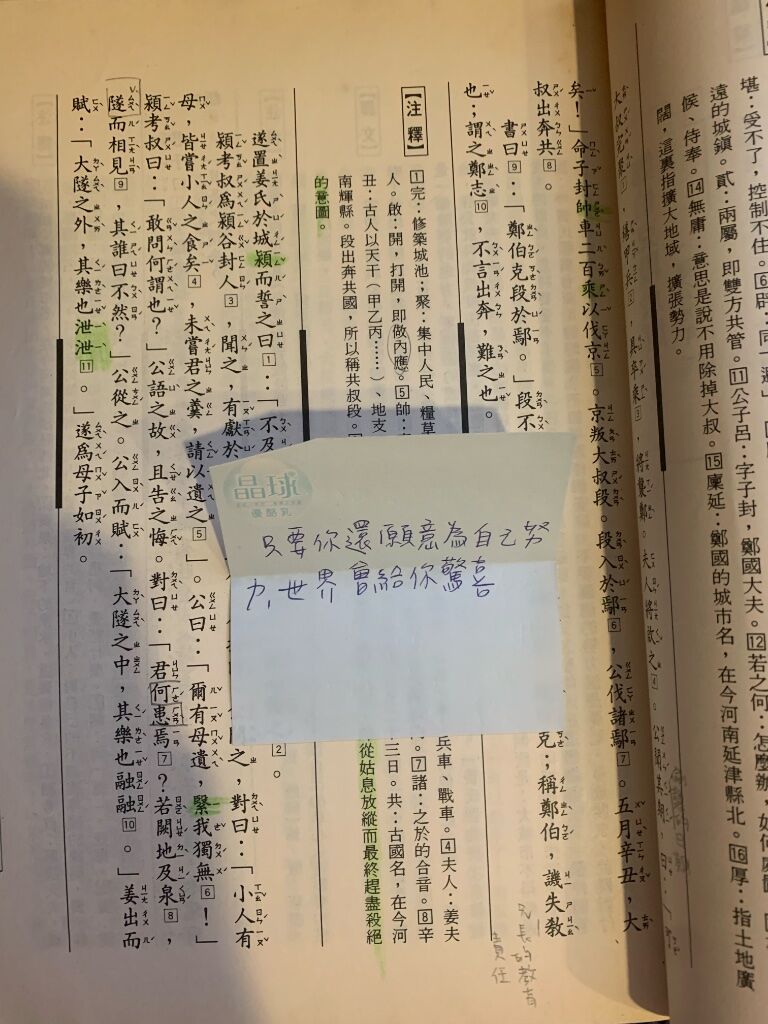 堪：受不了，控制不住。⑥辟：同「避」
遠的城鎮。貳：兩屬，即雙方共管。⑪公子呂：字子封，鄭國大夫。⑫若之何：怎麼辦，如何處置
候、侍奉。⑭無庸：意思是說不用除掉大叔。⑮廩延：鄭國的城市名，在今河南延津縣北。⑯厚：指土地廣
闊，這裏指擴大地域，擴張勢力。
大叔完聚①，繕甲兵②，具卒乘③，將襲鄭。夫人將啟之④。公聞其期，曰：「可
矣！」命子封帥車二百乘以伐京⑤。京叛大叔段。段入於鄢⑥，公伐諸鄢⑦。五月辛丑，大
叔出奔共⑧。
書曰⑨：「鄭伯克段於鄢。」段不 克；稱鄭伯，譏失教
也；謂之鄭志⑩，不言出奔，難之也。
兄長的教育
責任
【注釋】①完：修築城池；聚：集中人民、糧草 兵車、戰車。④夫人：姜夫
人。啟：開，打開，即做內應。⑤帥： 。⑦諸：之於的合音。⑧辛
丑：古人以天干（甲乙丙……）、地支 三日。共：古國名，在今河
南輝縣。段出奔共國，所以稱共叔段。 從姑息放縱而最終趕盡殺絕
的意圖。
遂置姜氏於城潁而誓之曰①：「不及 ②。
潁考叔為潁谷封人③，聞之，有獻於 之，對曰：「小人有
母，皆嘗小人之食矣④，未嘗君之羹，請以遺之⑤」。公曰：「爾有母遺，繄我獨無⑥！」
潁考叔曰：「敢問何謂也？」公語之故，且告之悔。對曰：「君何患焉⑦？若闕地及泉⑧，
隧而相見⑨，其誰曰不然？」公從之。公入而賦：「大隧之中，其樂也融融⑩。」姜出而
賦：「大隧之外，其樂也泄泄⑪。」遂為母子如初。
晶球
優酪乳
只要你還願意為自己努
力，世界會給你驚喜